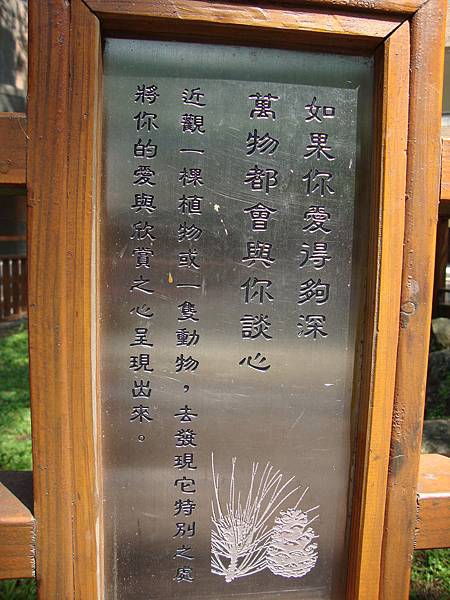 如果你愛得夠深
萬物都會與你談心
近觀一棵植物或一隻動物，去發現它特別之處
將你的愛與欣賞之心呈現出來。